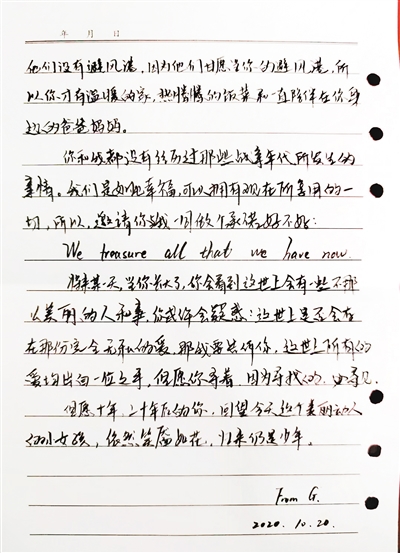 年 月 日
他们没有避风港，因为他们甘愿当你的避风港，所
以你才有温暖的家，热腾腾的饭菜和一直陪伴在你身
边的爸爸妈妈。
你和我都没有经历过那些战争年代所发生的
事情。我们是如此幸福，可以拥有现在所享用的一
切，所以，邀请你我一同做个承诺好不好：
We treasure all that we have now
将来某一天，当你长大了，你会看到这世上会有一些不那
么美丽的人和事，你或许会疑惑：这世上是否会存
在那份完全无私的爱，那我要告诉你，这世上所有的
爱均出自一位之手，但愿你寻着，因为寻找的，必寻见。
但愿十年、二十年后的你，回望今天这个美丽动人
的小女孩，依然笑靥如花，归来仍是少年。
From G.
2020. 10. 20.